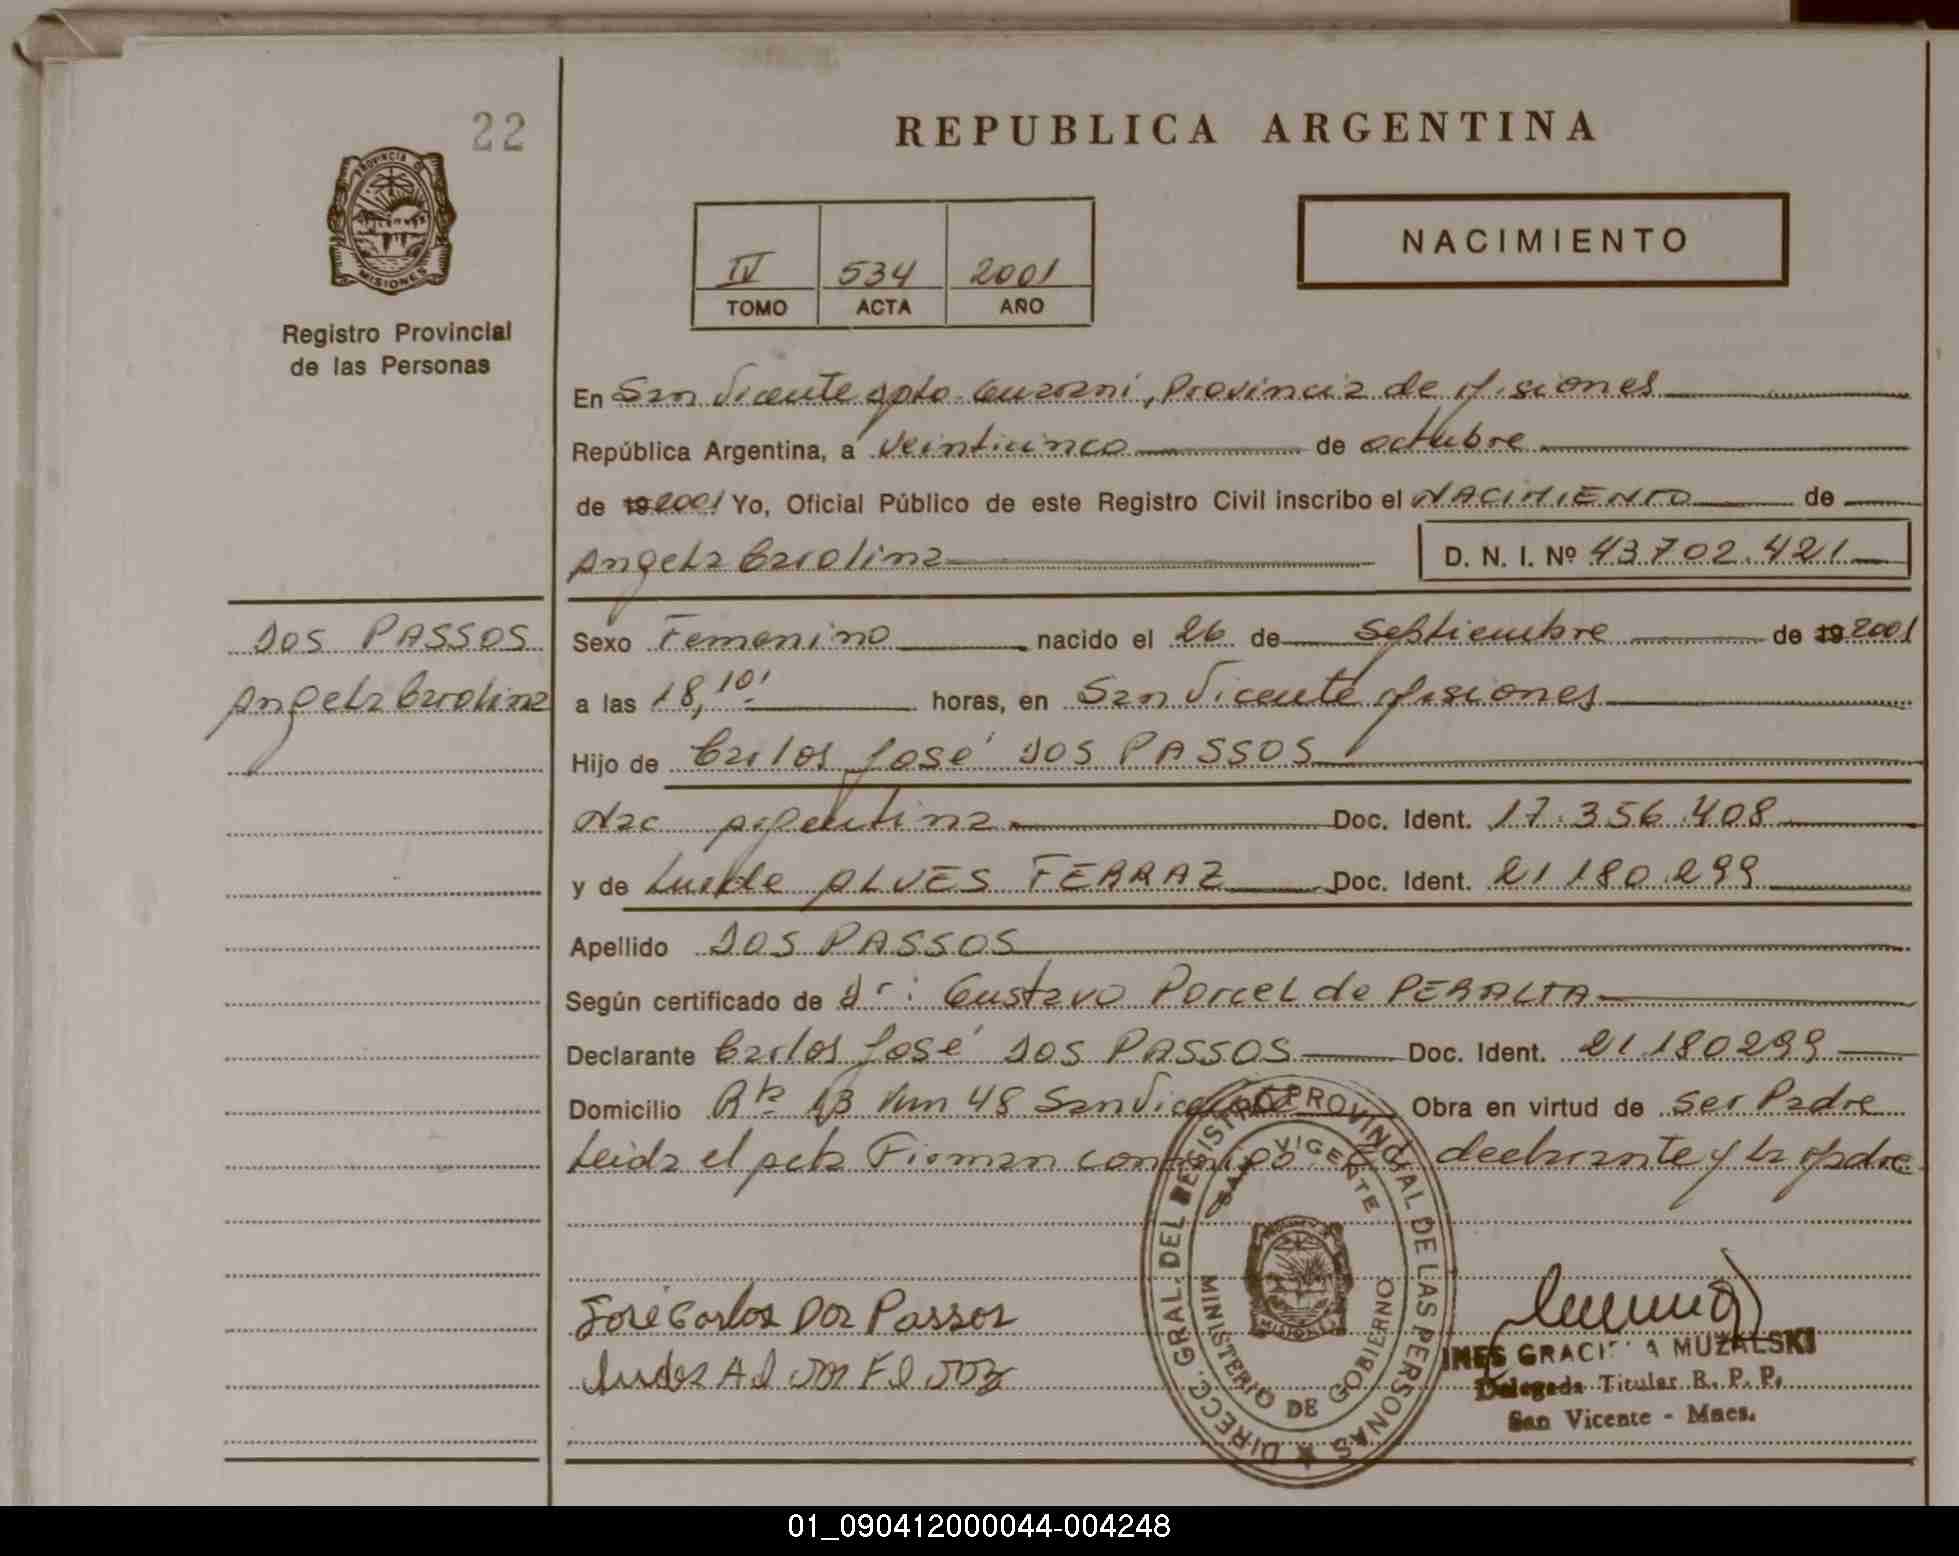 22
REPUBLICA ARGENTINA
PROVINCIA DE
MISIONES
Registro Provincial
de las Personas
NACIMIENTO
IV 534 2001
TOMO ACTA AÑO
En San Vicente Dpto. Guaraní, Provincia de Misiones
República Argentina, a Veinticinco de octubre
de 19 2001 Yo, Oficial Público de este Registro Civil inscribo el NACIMIENTO de
Angela Carolina D. N. I. Nº 43.702.421
DOS PASSOS
Angela Carolina
Sexo Femenino nacido el 26 de Septiembre de 19 2001
a las 18,10' horas, en San Vicente Misiones
Hijo de Carlos José DOS PASSOS
Nac Argentina Doc. Ident. 17.356.408
y de ALVES FERRAZ Doc. Ident. 21.180.299
Apellido DOS PASSOS
Según certificado de Dr: Gustavo Porcel de PERALTA
Declarante Carlos José DOS PASSOS Doc. Ident. 21.180299
Domicilio Rta 13 Km 48 San Vicente Obra en virtud de ser Padre
Leida el Acta Firman conmigo El declarante y la Madre
José Carlos Dos Passos
DIRECC. GRAL. DEL REGISTRO PROVINCIAL DE LAS PERSONAS
SAN VICENTE
MINISTERIO DE GOBIERNO
MISIONES
INES GRACIELA MUZALSKI
Delegada Titular R. P. P.
San Vicente - Mnes.
01_090412000044-004248